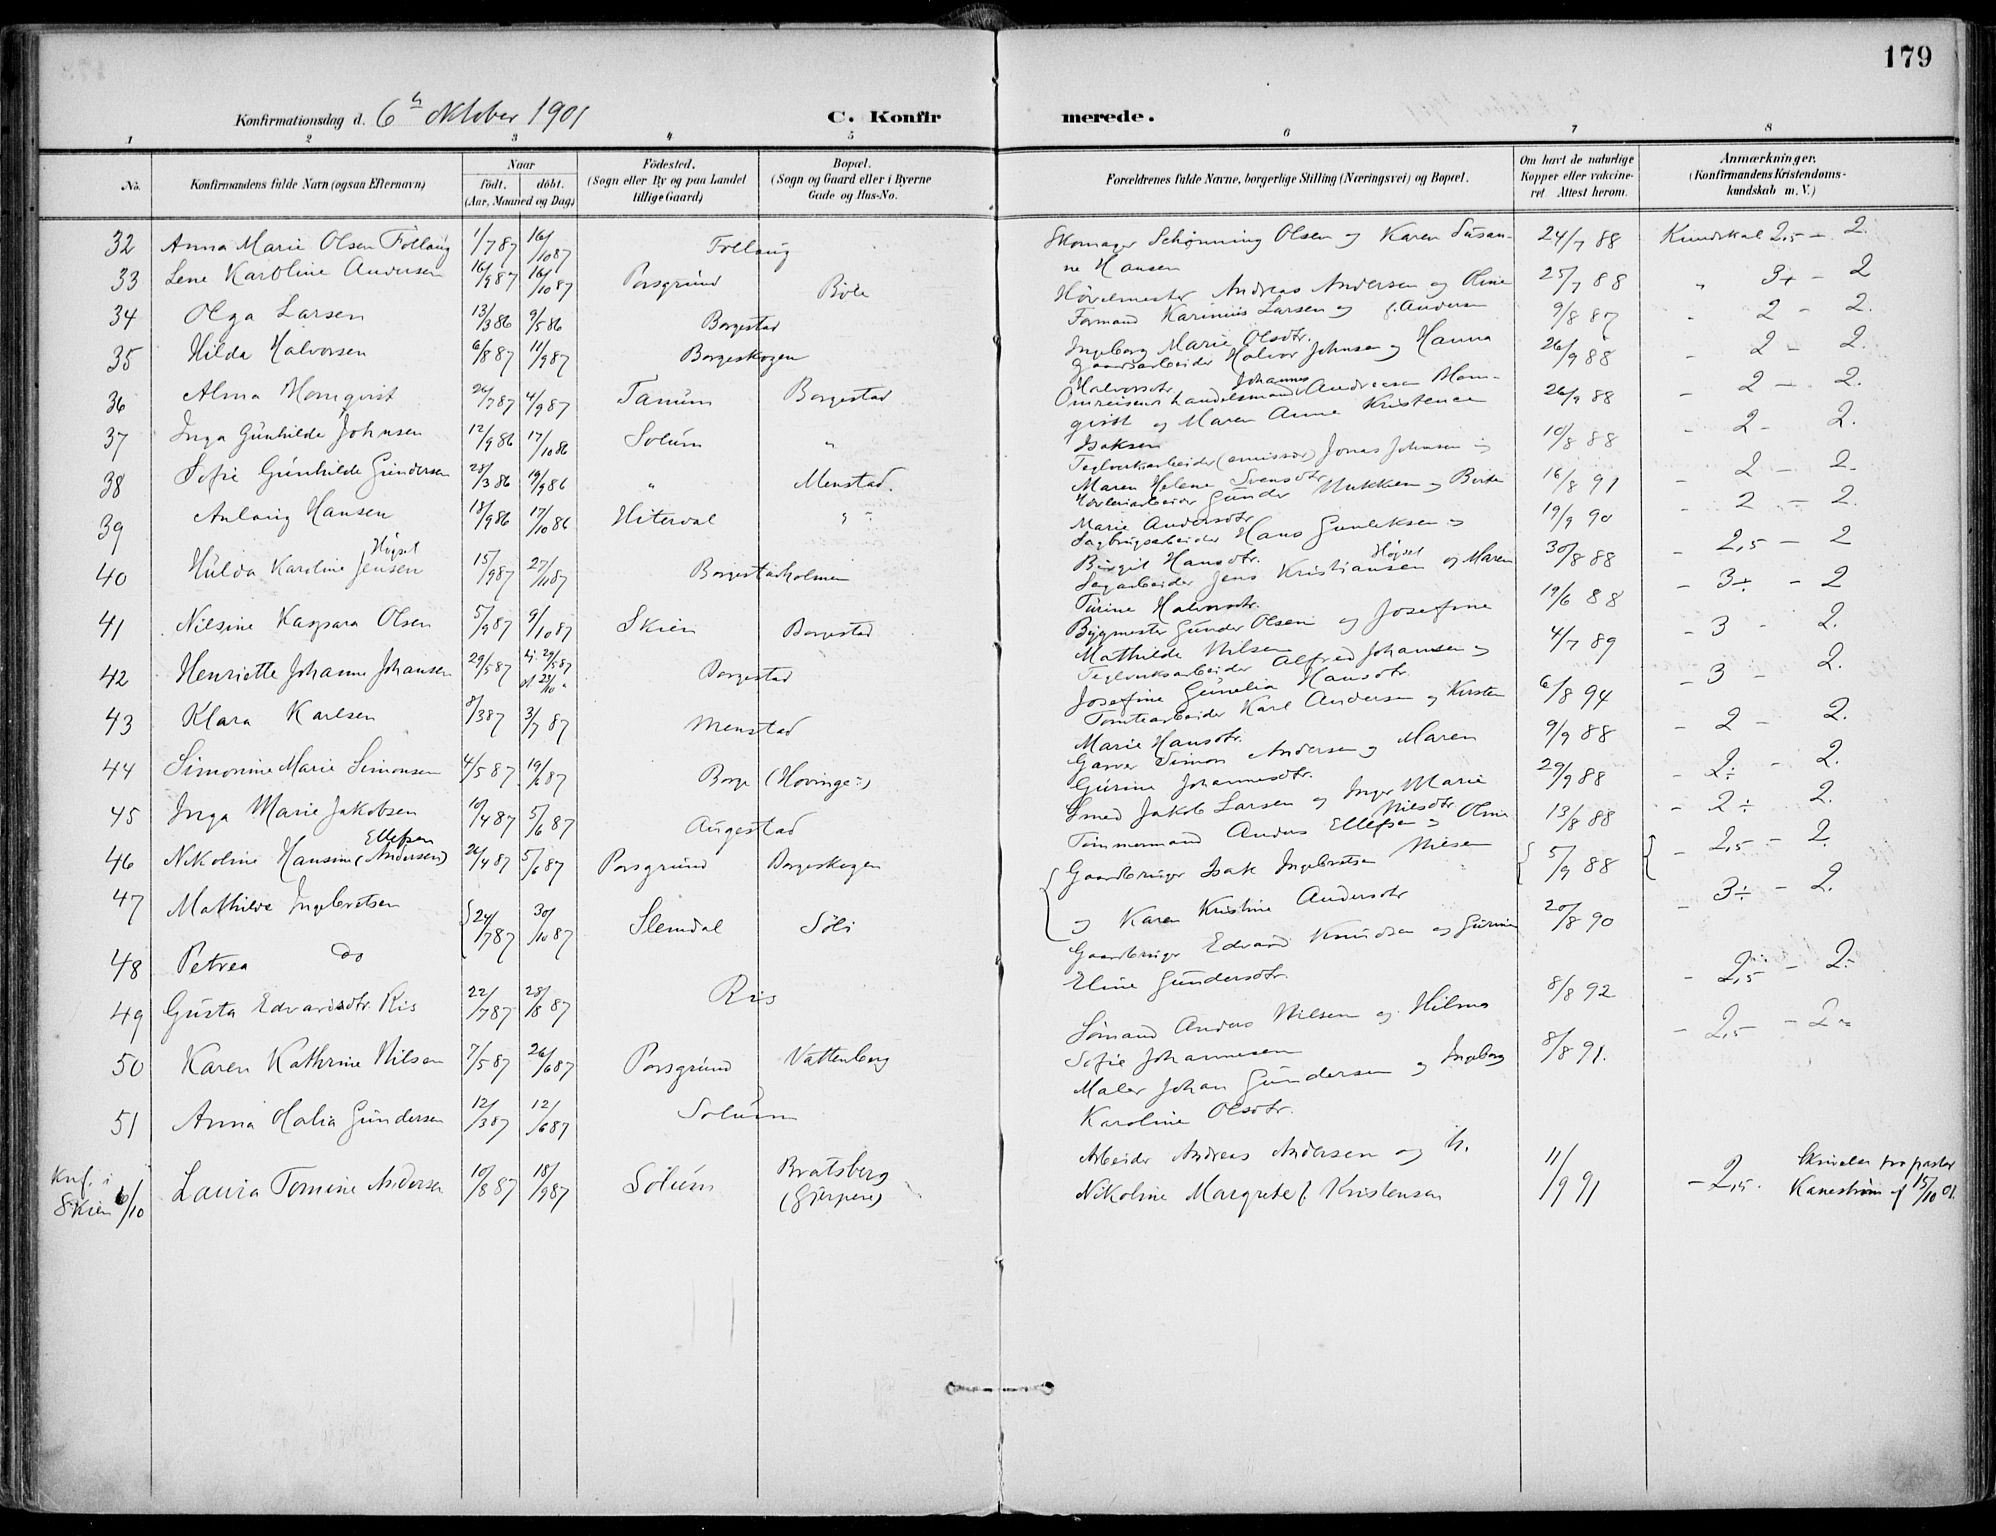 179
Konfirmationsdag d. 6te Oktober 1901 C. Konfirmerede.
1 2 3 4 5 6 7 8
No. Konfirmandens fulde Navn (ogsaa Efternavn) Naar födt. döbt. (Aar, Maaned og Dag) Födested. (Sogn eller By og paa Landet tillige Gaard) Bopæl. (Sogn og Gaard eller i Byerne Gade og Hus-No. Forældrenes fulde Navne, borgerlige Stilling (Næringsvei) og Bopæl. Om havt de naturlige Kopper eller vakcineret. Attest herom. Anmærkninger. (Konfirmandens Kristendomskundskab m. V.)
32 Anna Marie Olsen Follaug 1/7 87 16/10 87 Follaug Skomager Schønning Olsen og Karen Susanne Hansen 24/7 88 Kundskab 2,5 - 2.
33 Lene Karoline Andersen 16/9 87 16/10 87 Porsgrund Bøle Høvelmester Andreas Andersen og Oline f. Andersen 25/7 88 " 3+ - 2
34 Olga Larsen 13/3 86 9/5 86 Borgestad Formand Karinius Larsen og Ingeborg Marie Olsdtr. 9/8 87 " 2 - 2.
35 Hilda Halvorsen 6/8 87 11/9 87 Borgeskogen Gaardsarbeider Halvor Johnsen og Hanna Halvorsdtr. 26/9 88 - 2 - 2.
36 Alma Homqvist 26/7 87 4/9 87 Tanum Borgestad Omreisende handelsmand Johannes Andreasen Homqvist og Maren Anne Kristence Isaksen 26/9 88 - 2 - 2.
37 Inga Gunhilde Johnsen 12/9 86 17/10 86 Solum " Teglverksarbeider (emissær) Jonas Johnsen og Maren Helene Svensdtr. 10/8 88 - 2 - 2.
38 Sofie Gunhilde Gundersen 28/3 86 19/9 86 " Menstad. Høvleriarbeider Gunder Nukken og Berte Marie Andersdtr. 16/8 91 - 2 - 2.
39 Anlaug Hansen 18/9 86 17/10 86 Hiterdal " Sagbrugsarbeider Hans Gunleksen og Birgit Hansdtr. 19/9 90 - 2 - 2.
40 Hulda Karoline Jensen Høgset 15/9 87 27/11 87 Borgestadholmen Sagarbeider Jens Kristiansen Høgset og Maren Turine Halvorsdtr. 30/8 88 - 2,5 - 2
41 Nilsine Kaspara Olsen 5/9 87 9/10 87 Skien Borgestad Bygmester Gunder Olsen og Josefine Mathilde Nilsen 19/6 88 - 3÷ - 2
42 Henriette Johanne Johansen 29/5 87 hj. 29/5 87 st. 23/10 " Borgestad Teglverksarbeider Alfred Johansen og Josefine Gunelia Hansdtr. 4/7 89 - 3 - 2.
43 Klara Karlsen 8/3 87 3/7 87 Menstad Tomtearbeider Karl Andersen og Kirsten Marie Hansdtr. 6/8 94 - 3 - 2.
44 Simonine Marie Simonsen 4/5 87 19/6 87 Borge (Hovinge:) Garver Simon Andersen og Maren Gurine Johannesdtr. 9/9 88 - 2 - 2.
45 Inga Marie Jakobsen 10/4 87 5/6 87 Augestad Smed Jakob Larsen og Inger Marie Nilsdtr. 29/9 88 - 2÷ - 2.
46 Nikoline Hansine (Andersen) Ellefsen 26/4 87 5/6 87 Porsgrund Borgeskogen Tømmermand Anders Ellefsen og Oline Nilsen 13/8 88 - 2÷ 2.
47 Mathilde Ingebretsen { 24/7 87 30/10 87 Slemdal Søli { Gaardbruger Isak Ingebretsen og Karen Kristine Andersdtr { 5/9 88 { - 2,5 - 2.
48 Petrea do - 3÷ - 2.
49 Gusta Edvardsdtr. Ris 22/7 87 28/8 87 Ris Gaardbruger Edvard Knudsen og Gurine Eline Gundersdtr. 20/8 90 - 2,5 - 2.
50 Karen Kathrine Nilsen 7/5 87 26/6 87 Porsgrund Vattenberg Sømand Anders Nilsen og Hilma Sofie Johannesen 8/8 92 - 2,5 - 2
51 Anna Halia Gundersen 12/3 87 12/6 87 Solum Maler Johan Gundersen og Ingeborg Karoline Olsdtr. 8/8 91.
Knf. i Skien 6/10 Laura Tomine Andersen 10/8 87 18/9 87 Solum Bratsberg (Gjerpen) Arbeider Andreas Andersen og h. Nikoline Margrete f. Kristensen 11/9 91 - 2,5. Skrivelse fra pastor Kanestrøm af 15/10 01.